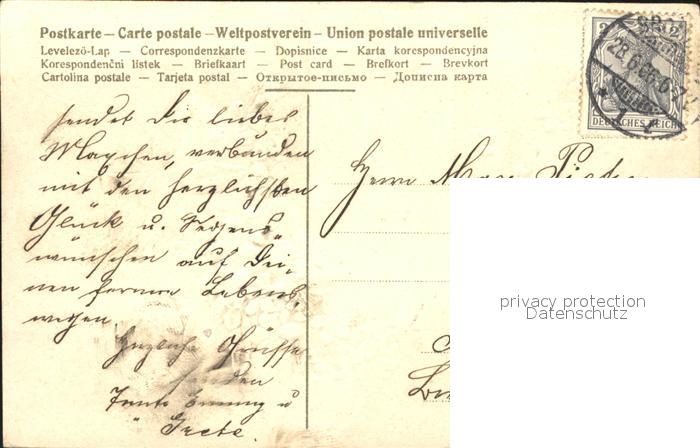 Postkarte — Carte postale — Weltpostverein — Union postale universelle
Levelező-Lap — Correspondenzkarte — Dopisnice — Karta korespondencyjna
Korespondenční lístek — Briefkaart — Post card — Brefkort — Brevkort
Cartolina postale — Tarjeta postal — Открытое-письмо — Дописна карта
DEUTSCHES REICH
sendet Dir liebes
Maxchen, verbunden
mit den herzlichsten
Glück u. Segens-
wünschen auf Dei-
nen ferneren Lebens-
wegen.
Herzliche Grüsse
senden
Tante Emmy u
Grete.
Herrn Max
privacy protection
Datenschutz